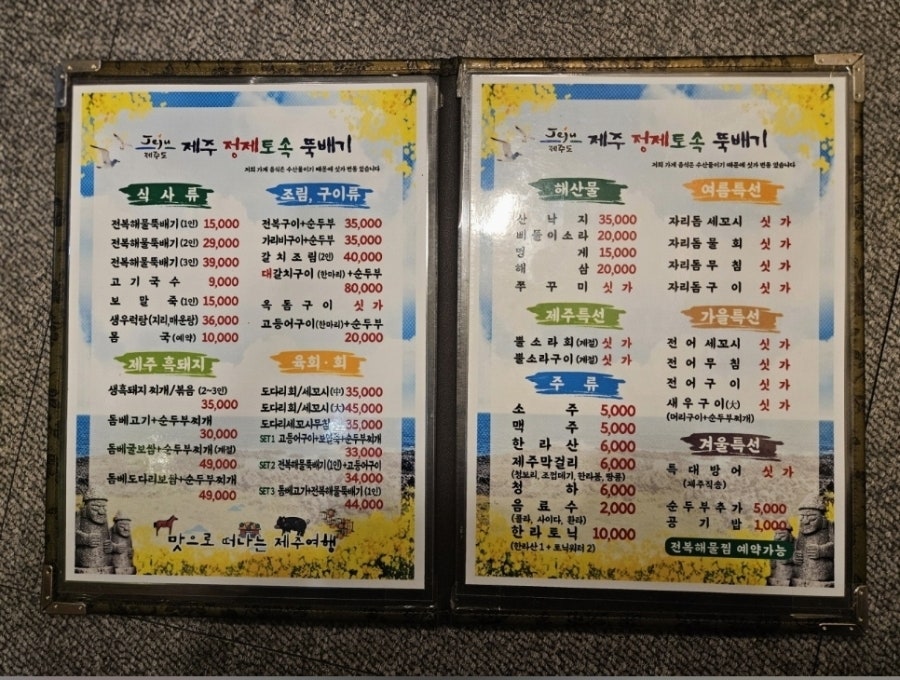 Jeju
제주도
제주 정제토속 뚝배기
저희 가게 음식은 수산물이기 때문에 싯가 변동 있습니다
식사류
전복해물뚝배기(1인) 15,000
전복해물뚝배기(2인) 29,000
전복해물뚝배기(3인) 39,000
고기국수 9,000
보말국(1인) 15,000
생우럭탕(지리,매운탕) 36,000
몸국(예약) 10,000
제주 흑돼지
생흑돼지 찌개/볶음 (2~3인)
35,000
돔베고기+순두부찌개
30,000
돔베굴보쌈+순두부찌개(계절)
49,000
돔베도다리보쌈+순두부찌개
49,000
조림, 구이류
전복구이+순두부 35,000
가리비구이+순두부 35,000
갈치조림(2인) 40,000
대갈치구이 (한마리)+순두부
80,000
옥돔구이 싯가
고등어구이(한마리)+순두부
20,000
육회·회
도다리회/세꼬시(中) 35,000
도다리회/세꼬시(大) 45,000
도다리세꼬시무침 35,000
SET 1 고등어구이+보말국+순두부찌개
33,000
SET 2 전복해물뚝배기(1인)+고등어구이
34,000
SET 3 돔베고기+전복해물뚝배기 (1인)
44,000
맛으로 떠나는 제주여행
Jeju
제주도
제주 정제토속 뚝배기
저희 가게 음식은 수산물이기 때문에 싯가 변동 있습니다
해산물
산낙지 35,000
삐뚤이소라 20,000
멍게 15,000
해삼 20,000
쭈꾸미 싯가
제주특선
뿔소라회(계절) 싯가
뿔소라구이(계절) 싯가
주류
소주 5,000
맥주 5,000
한라산 6,000
제주막걸리 6,000
청하 6,000
음료수 2,000
(콜라, 사이다, 환타)
한라토닉 10,000
(한라산 1 + 토닉워터 2)
여름특선
자리돔세꼬시 싯가
자리돔물회 싯가
자리돔무침 싯가
자리돔구이 싯가
가을특선
전어세꼬시 싯가
전어무침 싯가
전어구이 싯가
새우구이(大) 싯가
(머리구이+순두부찌개)
겨울특선
특대방어 싯가
(제주직송)
순두부추가 5,000
공기밥 1,000
전복해물찜 예약가능